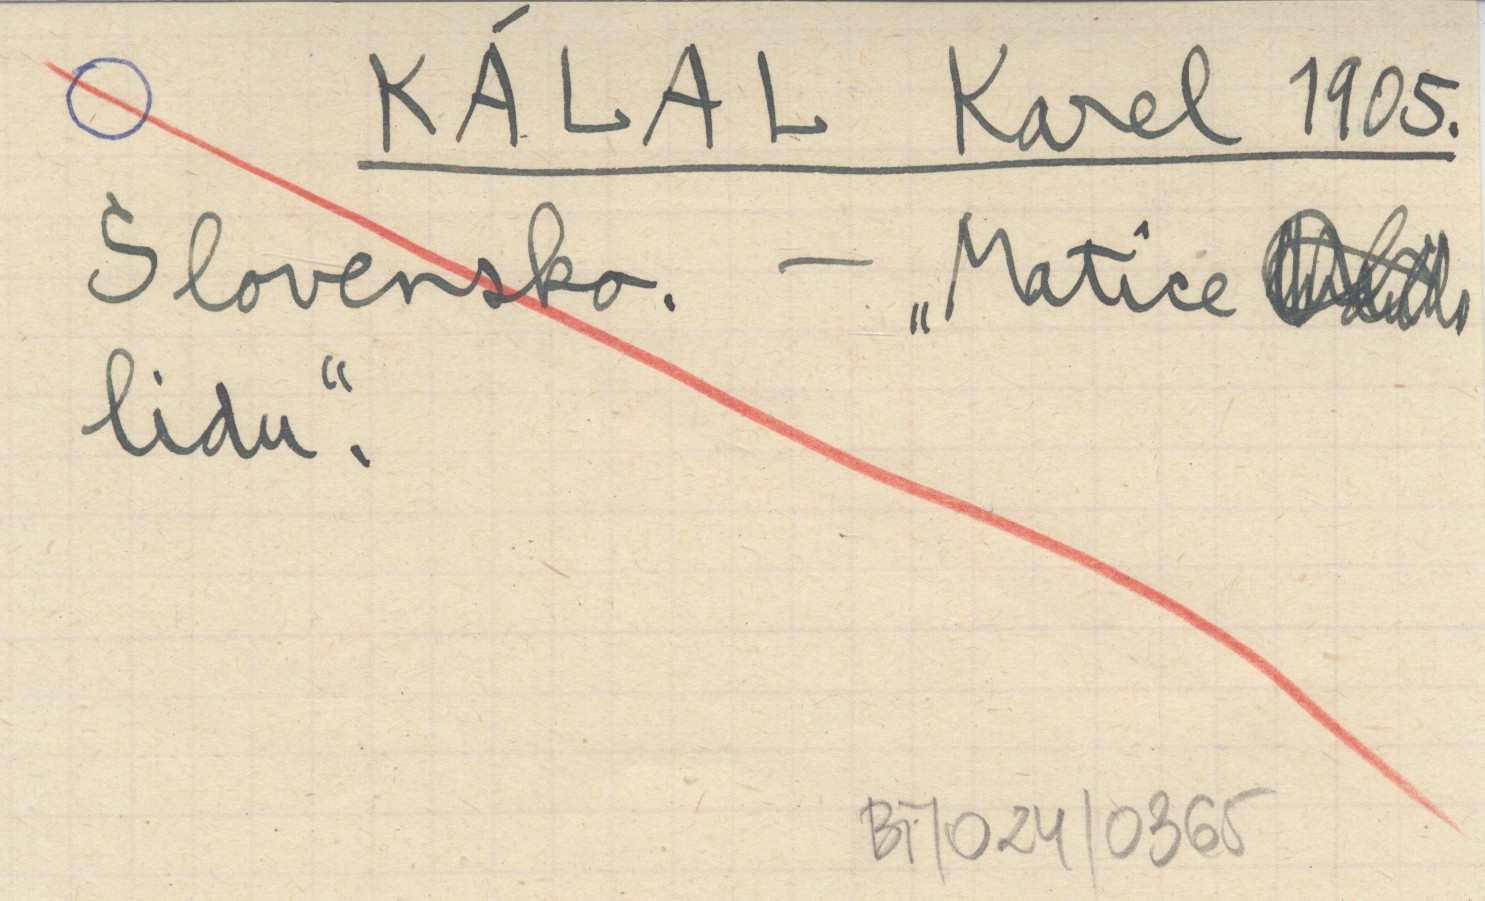 KÁLAL Karel 1905.
Slovensko. – „Matice
lidu“.
BI/024/0365